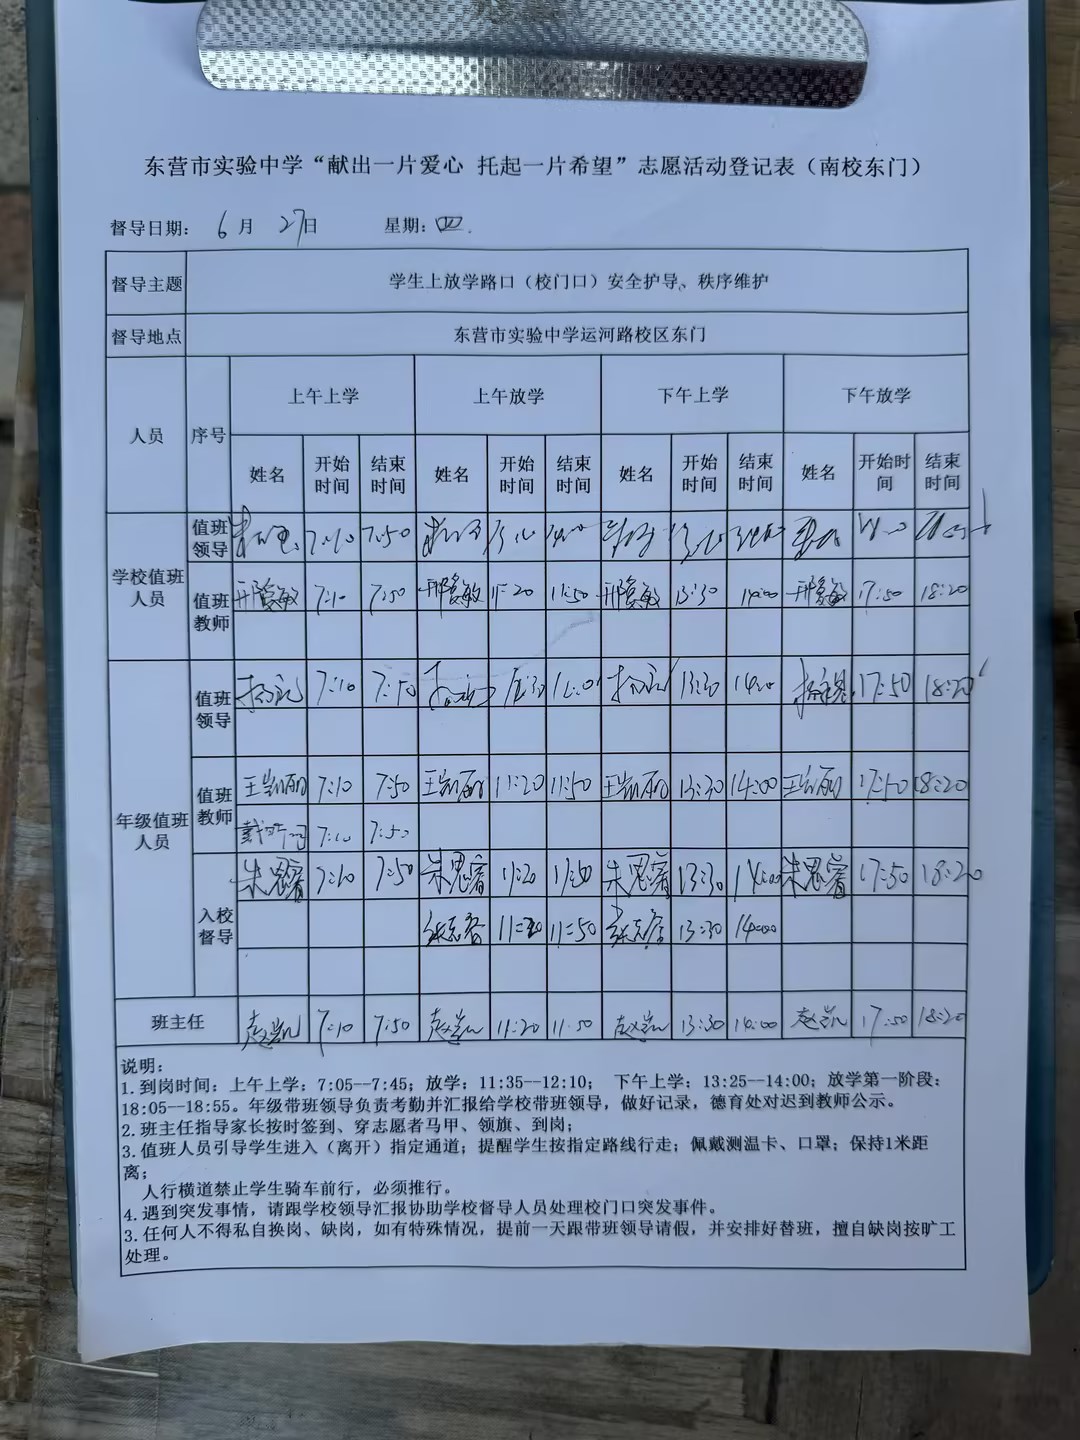 东营市实验中学“献出一片爱心 托起一片希望”志愿活动登记表（南校东门）
督导日期： 6月 27日 星期：四.
督导主题 学生上放学路口（校门口）安全护导、秩序维护
督导地点 东营市实验中学运河路校区东门
人员 序号 上午上学 上午放学 下午上学 下午放学
姓名 开始时间 结束时间 姓名 开始时间 结束时间 姓名 开始时间 结束时间 姓名 开始时间 结束时间
学校值班人员 值班领导 7:10 7:50
值班教师 7:10 7:50 11:20 11:50 13:30 14:00 17:50 18:20
年级值班人员 值班领导 7:10 7:50 13:30 17:50 18:20
值班教师 王凯丽 7:10 7:50 王凯丽 11:20 11:50 王凯丽 13:30 14:00 王凯丽 17:50 18:20
7:10 7:50
入校督导 朱思睿 7:10 7:50 朱思睿 11:20 11:50 朱思睿 13:30 14:00 朱思睿 17:50 18:20
11:20 11:50 13:30 14:00
班主任 赵凯 7:10 7:50 赵凯 11:20 11:50 赵凯 13:30 14:00 赵凯 17:50 18:20
说明：
1.到岗时间：上午上学：7:05--7:45；放学：11:35--12:10； 下午上学：13:25--14:00；放学第一阶段：
18:05--18:55。年级带班领导负责考勤并汇报给学校带班领导，做好记录，德育处对迟到教师公示。
2.班主任指导家长按时签到、穿志愿者马甲、领旗、到岗；
3.值班人员引导学生进入（离开）指定通道；提醒学生按指定路线行走；佩戴测温卡、口罩；保持1米距
离；
人行横道禁止学生骑车前行，必须推行。
4.遇到突发事情，请跟学校领导汇报协助学校督导人员处理校门口突发事件。
3.任何人不得私自换岗、缺岗，如有特殊情况，提前一天跟带班领导请假，并安排好替班，擅自缺岗按旷工
处理。